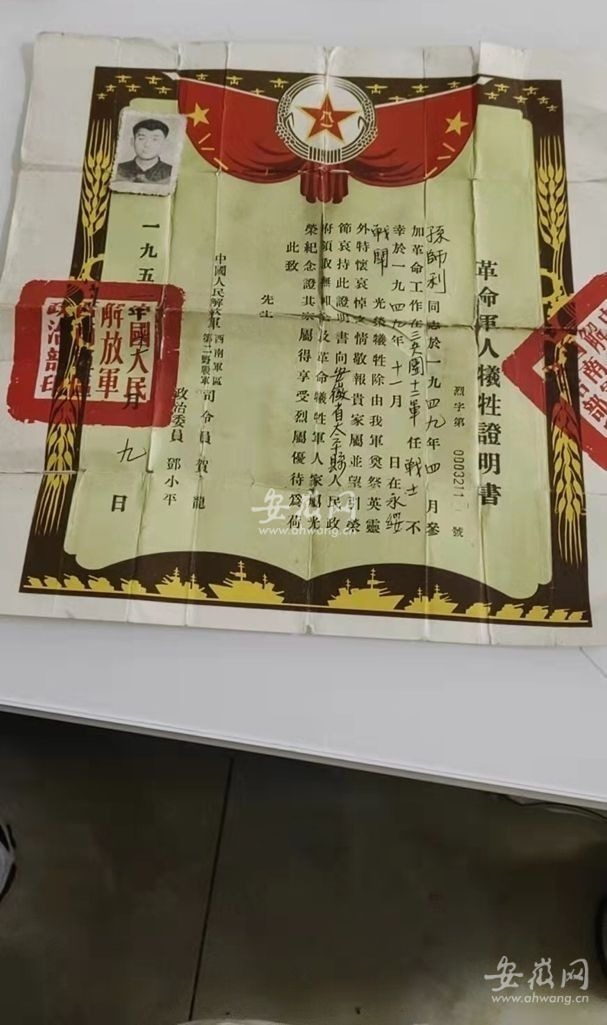 革命軍人犧牲證明書
烈字第 0003211 號
孫師利同志於一九四九年四月參
加革命工作在三兵團十二軍任戰士不
幸於一九四九年十一月 日在永綏
戰鬥光榮犧牲除由我軍奠祭英靈
外特懷哀悼之情敬報貴家屬並望引榮
節哀持此證明書向安徽省太平縣人民政
府領取撫卹金及革命犧牲軍人家屬光
榮紀念證其家屬得享受烈屬優待爲荷
此致
先生
中國人民解放軍 西南軍區
第二野戰軍 司令員 賀龍
政治委員 鄧小平
一九五 年 月九日
國人民
解放軍
政治部印
安徽网
www.ahwang.cn
安徽网
www.ahwang.cn